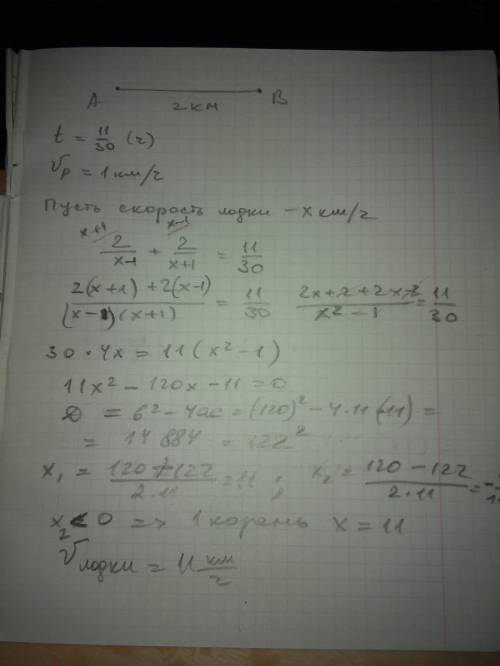 A 2 км B
t = 11/30 (ч)
Vр = 1 км/ч
Пусть скорость лодки – x км/ч
x+1 x-1
2/(x-1) + 2/(x+1) = 11/30
(2(x+1)+2(x-1))/((x-1)(x+1)) = 11/30 (2x+2+2x-2)/(x²-1) = 11/30
30·4x = 11(x²-1)
11x² - 120x - 11 = 0
D = b² - 4ac = (120)² - 4·11(-11) =
= 14884 = 122²
x₁ = (120+122)/(2·11) = 11 ; x₂ = (120-122)/(2·11) =
x₂ < 0 => 1 корень x = 11
Vлодки = 11 км/ч